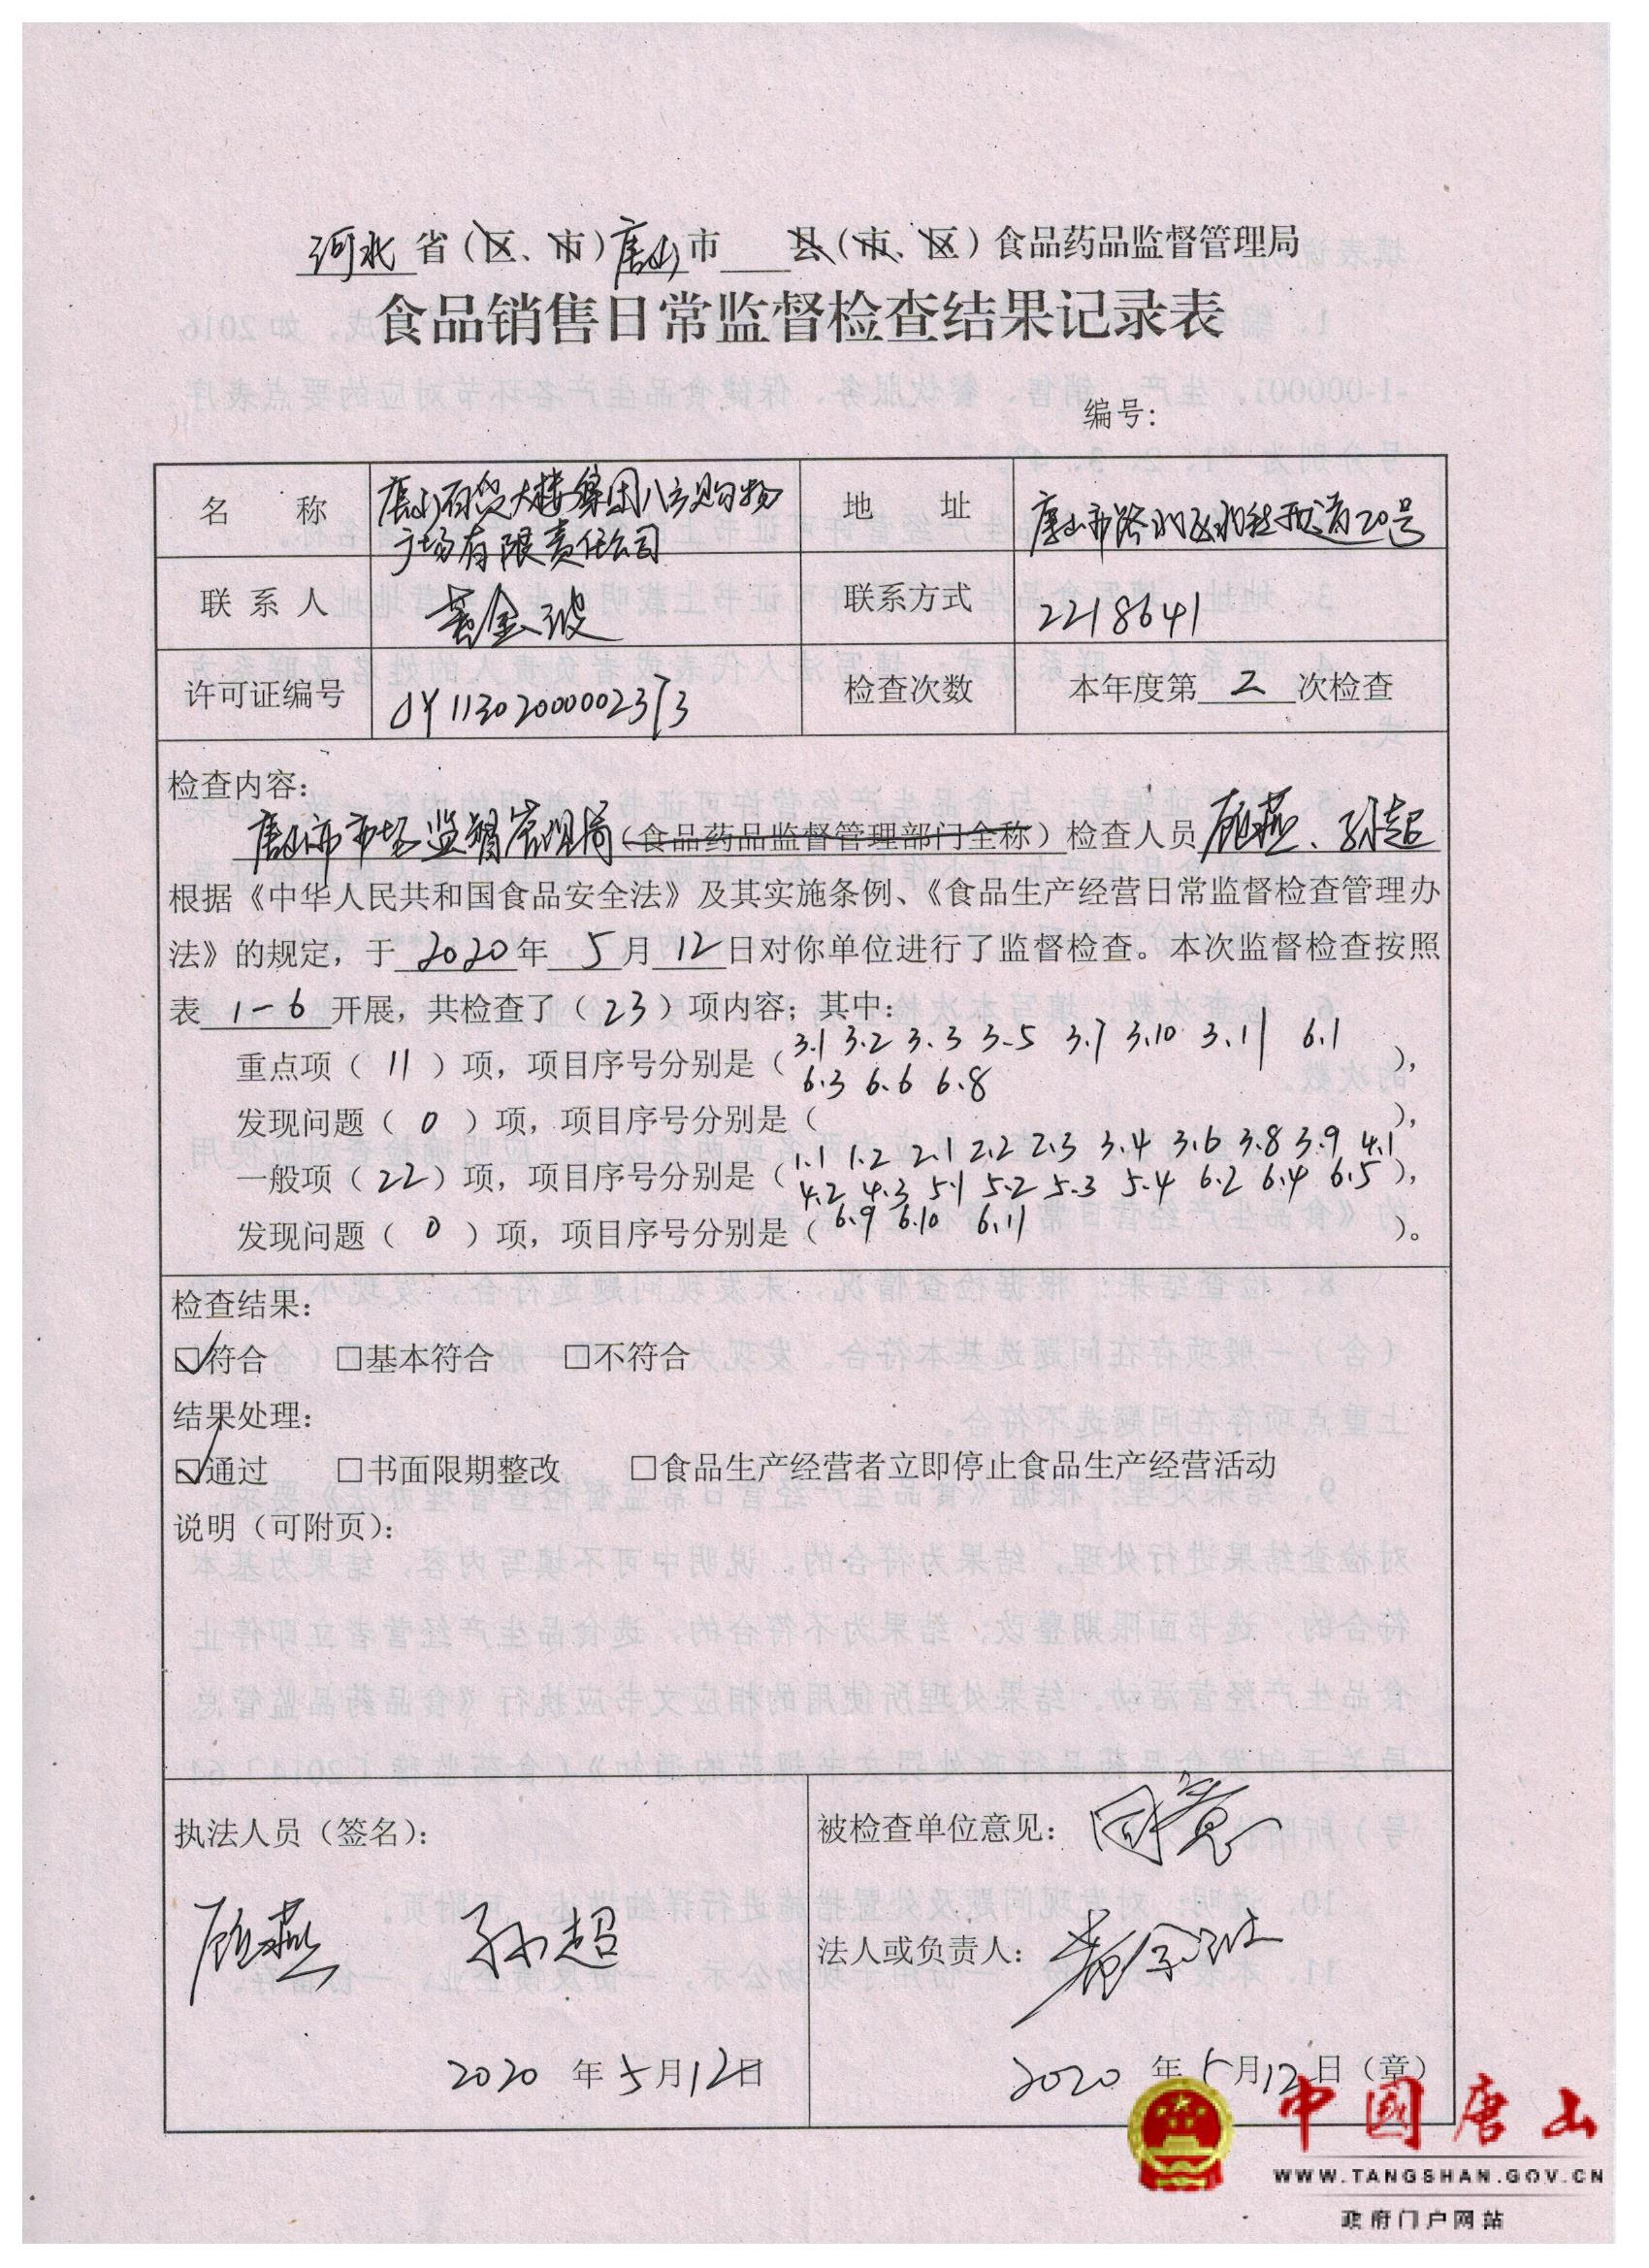 河北省（区、市）唐山市 县（市、区）食品药品监督管理局
食品销售日常监督检查结果记录表
编号：
名 称 唐山百货大楼集团八方购物广场有限责任公司 地 址 唐山市路北区北新西道20号
联 系 人 黄金玻 联系方式 2218641
许可证编号 JY11302000002373 检查次数 本年度第 2 次检查
检查内容：
唐山市市场监督管理局（食品药品监督管理部门全称）检查人员 顾燕、孙超
根据《中华人民共和国食品安全法》及其实施条例、《食品生产经营日常监督检查管理办
法》的规定，于 2020 年 5 月 12 日对你单位进行了监督检查。本次监督检查按照
表 1-6 开展，共检查了（23）项内容；其中：
重点项（11）项，项目序号分别是（3.1 3.2 3.3 3.5 3.7 3.10 3.11 6.1
6.3 6.6 6.8），
发现问题（0）项，项目序号分别是（ ），
一般项（22）项，项目序号分别是（1.1 1.2 2.1 2.2 2.3 3.4 3.6 3.8 3.9 4.1
4.2 4.3 5.1 5.2 5.3 5.4 6.2 6.4 6.5），
6.9 6.10 6.11
发现问题（0）项，项目序号分别是（ ）。
检查结果：
☑符合 □基本符合 □不符合
结果处理：
☑通过 □书面限期整改 □食品生产经营者立即停止食品生产经营活动
说明（可附页）：
执法人员（签名）： 被检查单位意见：同意
顾燕 孙超 法人或负责人：
2020 年 5 月 12 日 2020 年 5 月 12 日（章）
中国唐山
WWW.TANGSHAN.GOV.CN
政府门户网站